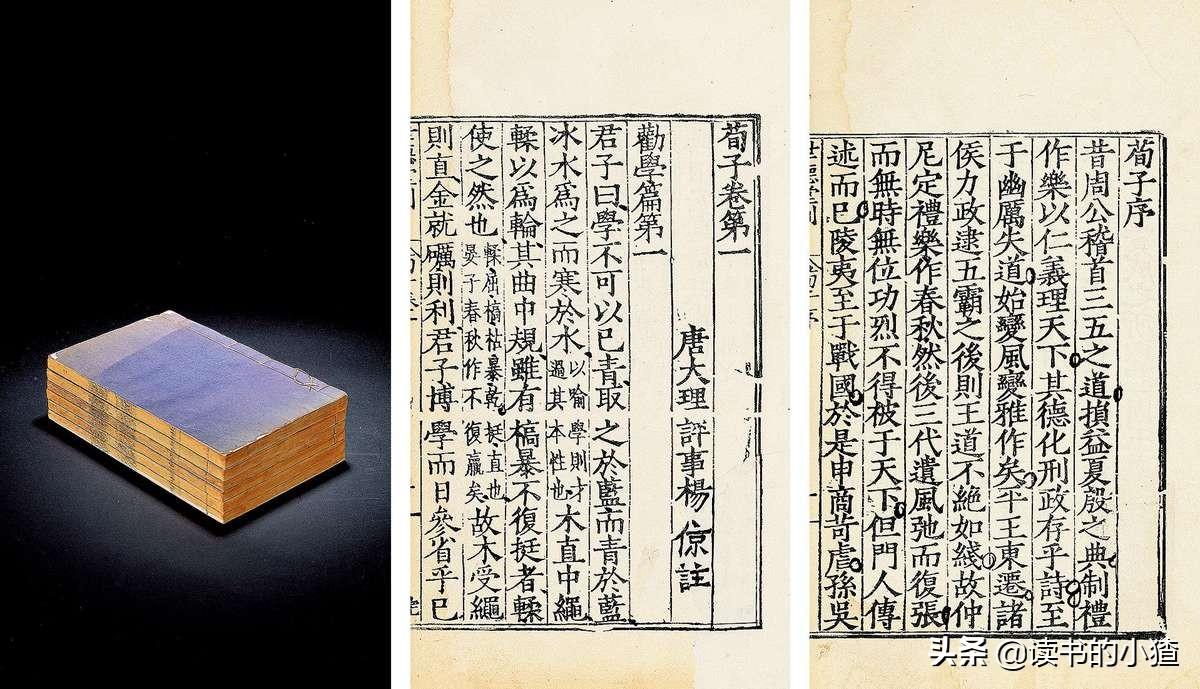 荀子序
昔周公稽首三五之道損益夏殷之典制禮
作樂以仁義理天下其德化刑政存乎詩至
于幽厲失道始變風變雅作矣平王東遷諸
侯力政逮五霸之後則王道不絕如綫故仲
尼定禮樂作春秋然後三代遺風弛而復張
而無時無位功烈不得被于天下但門人傳
述而已陵夷至于戰國於是申商苛虐孫吳
荀子卷第一
唐大理評事楊倞註
勸學篇第一
君子曰學不可以已青取之於藍而青於藍
冰水爲之而寒於水以喻學則才過其本性也木直中繩
輮以爲輪其曲中規雖有槁暴不復挺者輮
使之然也輮屈槁枯暴乾挺直也晏子春秋作不復贏矣故木受繩
則直金就礪則利君子博學而日參省乎己
头条 @读书的小猹